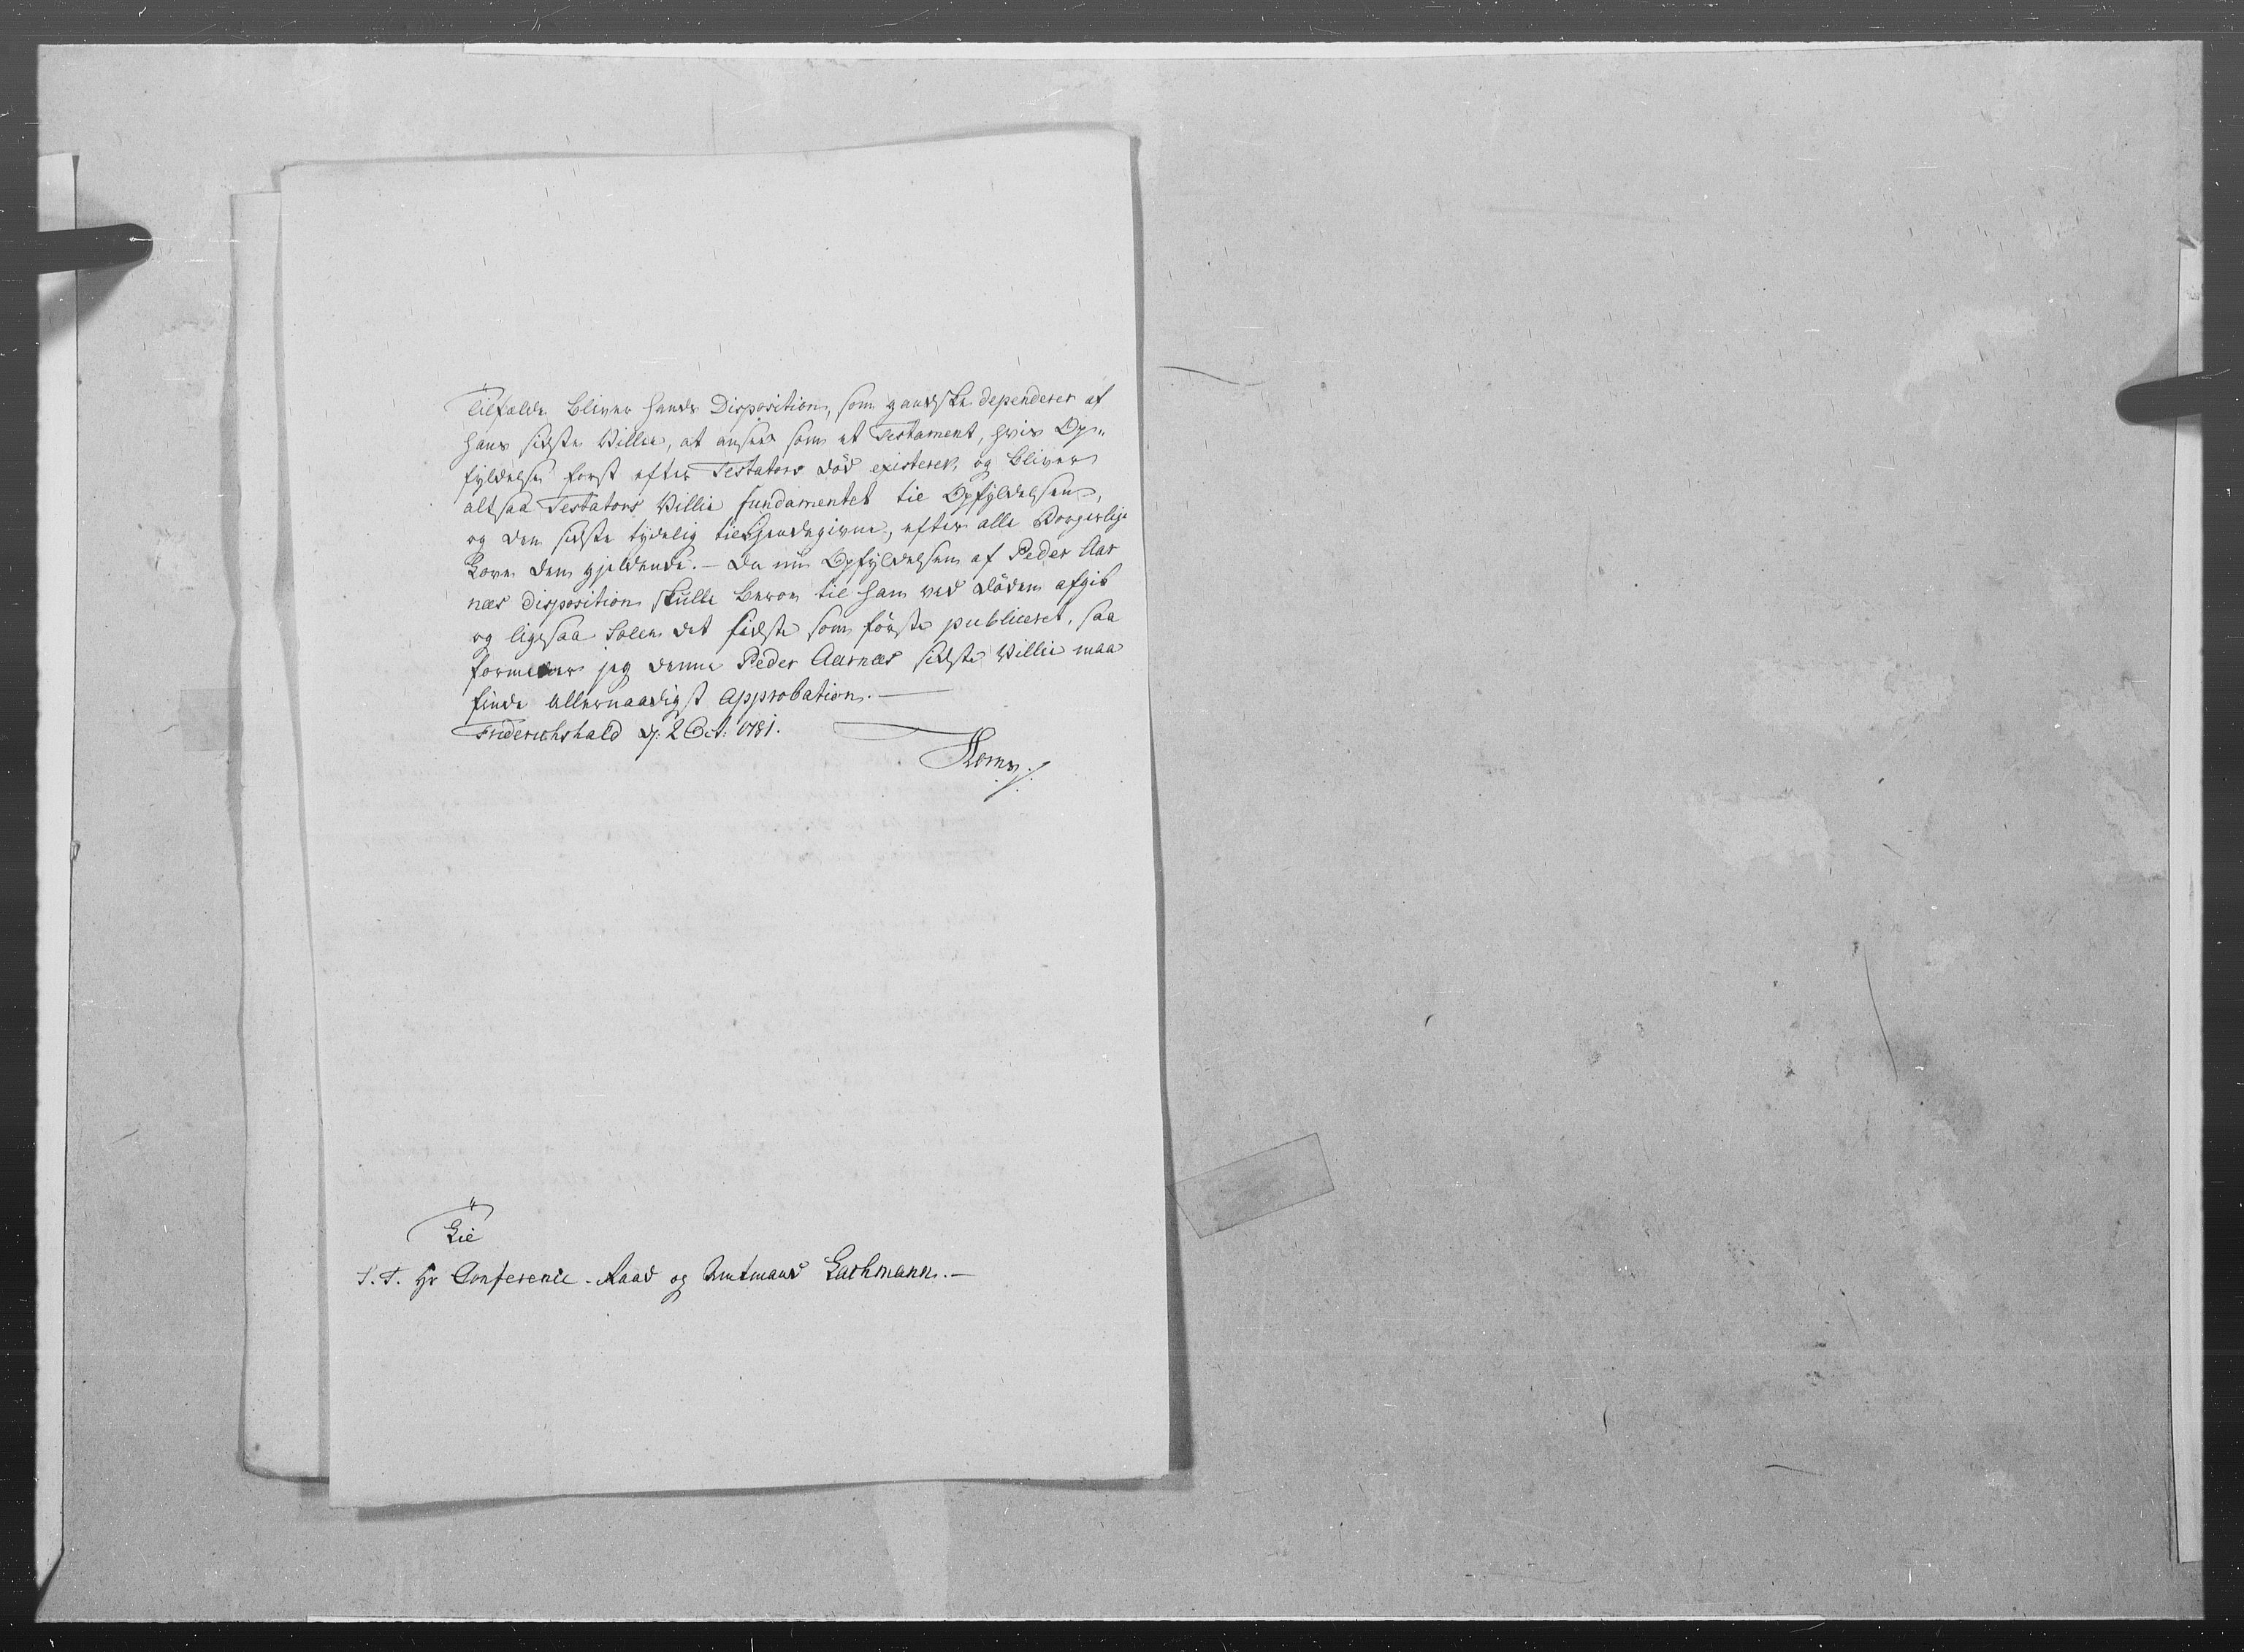 Tilfælde bliver hands Disposition, som gandske dependerer af
hans sidste Villie, at ansee som et Testament, hvis Op„
fyldelse først efter Testators Död existerer, og bliver
altsaa Testators Villie fundamentet til Opfyldelsen,
og den sidste tydelig tilkiendegivne, efter alle Borgerlige
Love den gjeldende. – Da nu Opfyldelsen af Peder Aar
næs disposition skulle beroe til han ved Döden afgik
og ligesaa det sidste som förste publiceret, saa
formeener jeg denne Peder Aarnæs sidste Villie maa
finde allernaadigst Approbation. —
Friderichshald d: 2 Oct: 1781.
Til
S. T. Hr Conference-Raad og Amtmand Lachmann. –